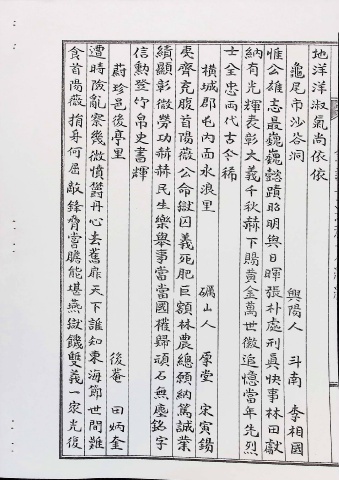 地洋洋淑氣尚依依
龜尾市沙谷洞 興陽人 斗南 李相國
惟公雄志最巍巍懿蹟昭明與日暉張朴處刑眞快事林田獻
納有光輝表彰大義千秋赫下賜黃金萬世徽追憶當年先烈
士全忠兩代古今稀
橫城郡屯內面永浪里 礪山人 原堂 宋寅錫
夷齊克腹首陽薇公命獄囚義死肥巨額林農總願納篤誠業
績顯彰微勞功赫赫民生樂擧事當當國權歸頑石無塵銘字
信勲登竹帛史書輝
蔚珍邑後亭里 後菴 田炳奎
遭時險亂察幾微憤欝丹心去舊扉天下誰知東海節世間難
食首陽薇指身何屈敵鋒脅嘗膽能堪燕獄饑雙義一家光復